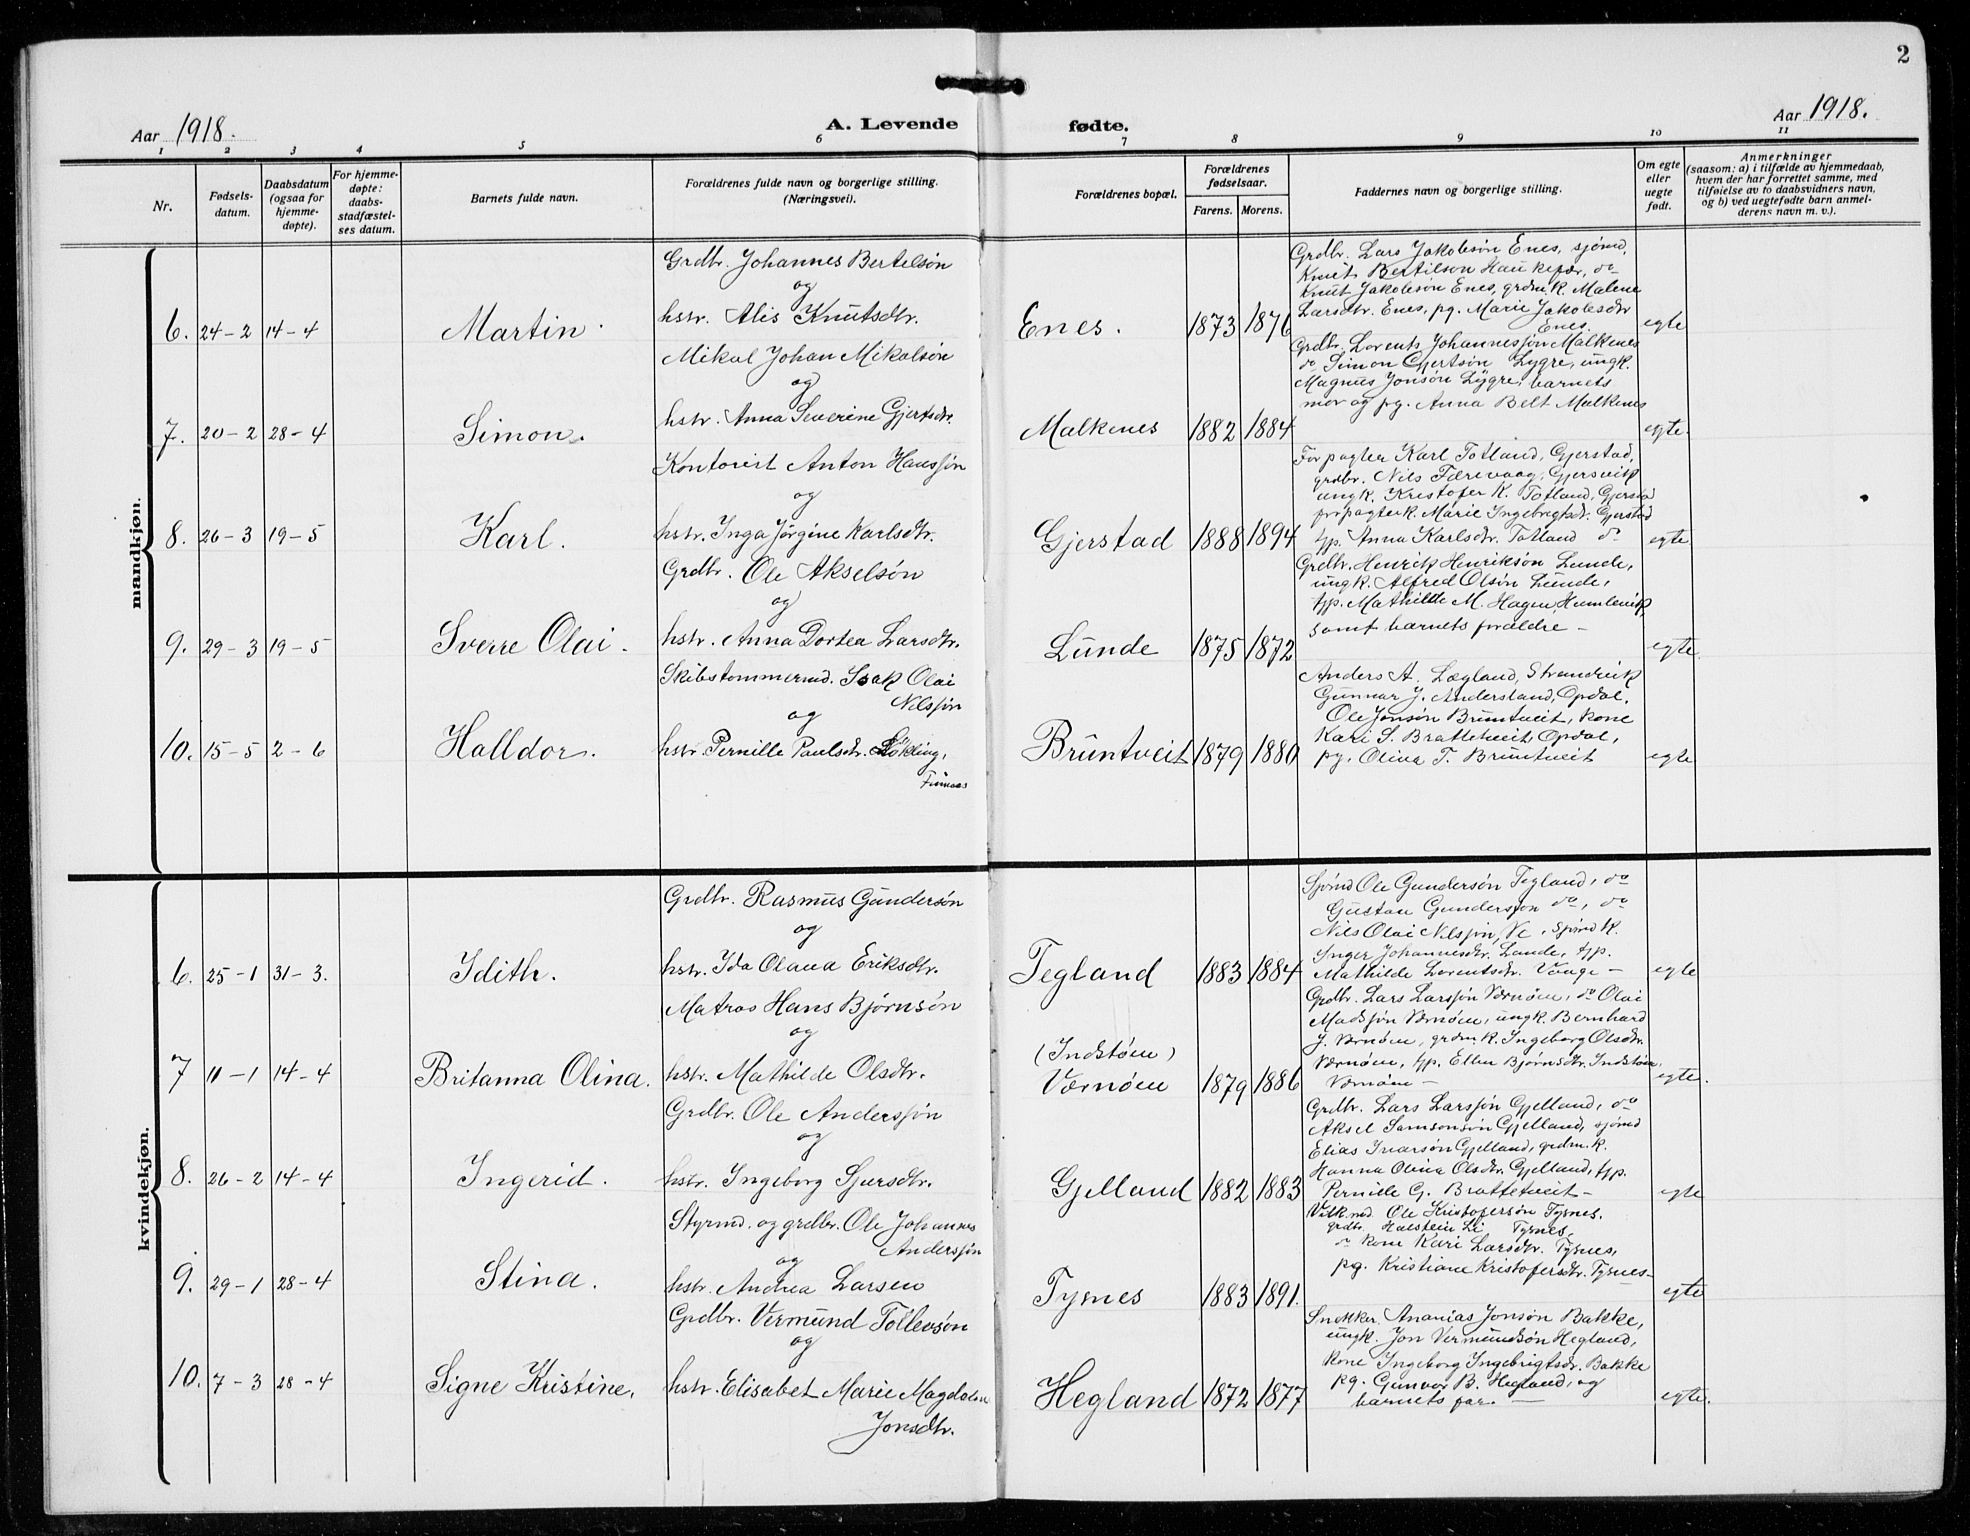 2
Aar 1918.
A. Levende fødte.
Aar 1918.
1 2 3 4 5 6 7 8 9 10 11
Nr.
Fødsels-
datum.
Daabsdatum
(ogsaa for
hjemme-
døpte).
For hjemme-
døpte:
daabs-
stadfæstel-
ses datum.
Barnets fulde navn.
Forældrenes fulde navn og borgerlige stilling.
(Næringsvei).
Forældrenes bopæl.
Forældrenes
fødselsaar.
Farens. Morens.
Faddernes navn og stilling.
Om egte
eller
uegte
født.
Anmerkninger
(saasom: a) i tilfælde av hjemmedaab,
hvem der har forrettet samme, med
tilføielse av to daabsvidners navn,
og b) ved uegtefødte barn anmel-
derens navn m. v.).
mandkjøn.
6. 24-2 14-4 Martin.
Grdbr. Johannes Bertelsøn
og
hstr. Alis Knutsdtr.
Enes. 1873 1876
Grdbr. Lars Jakobsøn Enes, sjømd,
Knut Bertilson Haukefær, do
Knut Jakobsøn Enes, grdm.k. Malene
Larsdtr. Enes, pg. Marie Jakobsdtr
Enes.
egte
7. 20-2 28-4 Simon.
Mikal Johan Mikalsøn
og
hstr. Anna Severine Gjertsdtr.
Malkenes 1882 1884
Grdbr. Lorents Johannessøn Malkenes
do Simon Gjertsøn Lygre, ungk.
Magnus Jonsøn Lygre, barnets
mor og pg. Anna Malkenes
egte.
8. 26-3 19-5 Karl.
Kontorist Anton Hanssøn
og
hstr. Inga Jørgine Karlsdtr.
Gjerstad 1888 1894
Forpagter Karl Totland, Gjerstad,
grdbr. Nils Færevaag, Gjersvik
ungk. Kristofer K. Totland, Gjerstad
forpagterk. Marie Ingebrigtsdr. Gjerstad
tjp. Anna Karlsdtr. Totland do
egte
9. 29-3 19-5 Sverre Olai.
Grdbr. Ole Akselsøn
og
hstr. Anna Dortea Larsdtr.
Lunde 1875 1872
Grdbr. Henrik Henriksøn Lunde,
ungk. Alfred Olsøn Lunde,
tjp. Mathilde M. Hagen, Humlevik
samt barnets forældre -
egte.
10. 15-5 2-6 Halldor.
Skibstømmermd. Isak Olai
Nilssøn
og
hstr. Pernille Paulsdtr. Løkling,
Finnaas
Bruntveit 1879 1880
Anders A. Lægland, Strandvik
Gunnar J. Andersland, Opdal,
Ole Jonsøn Bruntveit, kone
Kari S. Brattetveit Opdal,
pg. Olina T. Bruntveit
egte
kvindekjøn.
6. 25-1 31-3. Idith.
Grdbr. Rasmus Gundersøn
og
hstr. Ida Olava Eriksdtr.
Tegland 1883 1884
Sjømd Ole Gundersøn Tegland, do
Gustav Gunderssøn do, do
Nils Olai Nilssøn, Ve, sjømd k.
Inger Johannesdtr. Lande, tjp.
Mathilde Lorentsdtr. Vaage -
egte
7 11-1 14-4 Britanna Olina.
Matros Hans Bjørnsøn
og
hstr. Mathilde Olsdtr.
(Indstøen)
Værnøen 1879 1886
Grdbr. Lars Larssøn Værnøen, do Olai
Madssøn Værnøen, ungk. Bernhard
J. Værnøen, grdm.k. Ingeborg Olsdtr.
Værnøen, tjp. Ellen Bjørnsdtr. Indstøen,
Værnøen -
egte.
8. 26-2 14-4 Ingerid.
Grdbr. Ole Anderssøn
og
hstr. Ingeborg Sjursdtr.
Gjelland 1882 1883
Grdbr. Lars Larssøn Gjelland, do
Aksel Samsonsøn Gjelland, sjømd
Elias Ivarsøn Gjelland, grdm.k.
Hanna Olina Olsdtr. Gjelland, tjp.
Pernille G. Brattetveit -
egte
9. 29-1 28-4 Stina.
Styrmd. og grdbr. Ole Johannes
Anderssøn
og
hstr. Andrea Larsen
Tysnes 1883 1891.
Ole Kristofersøn Tysnes,
grdbr. Halstein Li Tysnes,
do kone Kari Larsdtr. Tysnes,
pg. Kristiane Kristofersdtr. Tysnes-
egte
10. 7-3 28-4 Signe Kristine.
Grdbr. Vermund Tollevsøn
og
hstr. Elisabet Marie Magdalen
Jonsdtr.
Hegland 1872 1877
Snekker Ananias Jonsøn Bakke,
ungk. Jon Vermundsøn Hegland,
kone Ingeborg Ingebrigtsdr. Bakke
pg. Gunvor B. Hegland, og
barnets far. -
egte.